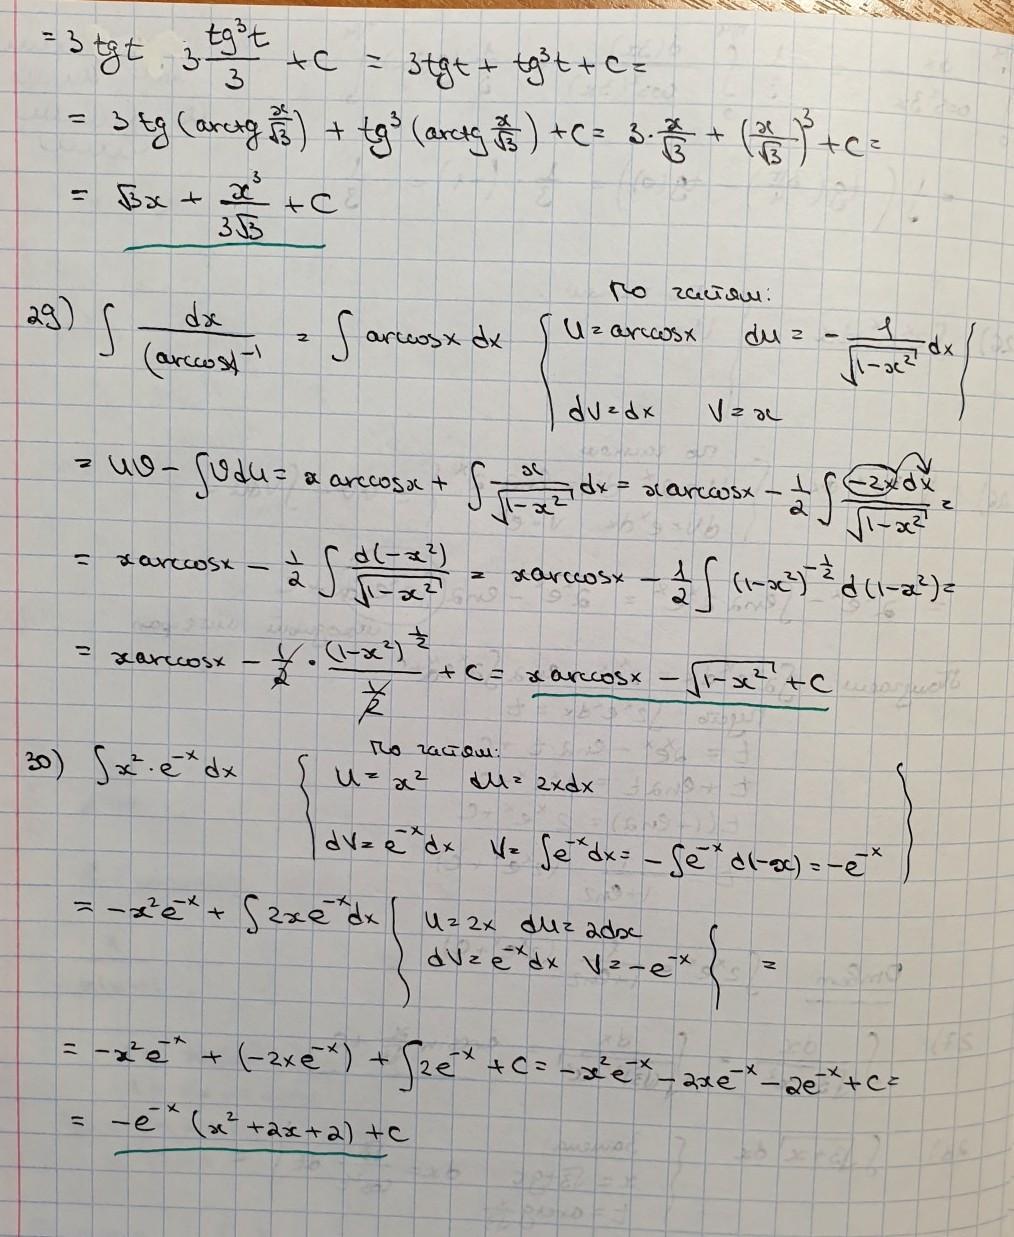 = 3 tg t 3 · tg³t/3 + C = 3tg t + tg³t + C =
= 3 tg (arctg x/√3) + tg³ (arctg x/√3) + C = 3 · x/√3 + (x/√3)³ + C =
= √3x + x³/3√3 + C
По частям:
29) ∫ dx/(arccosx)⁻¹ = ∫ arccosx dx { U = arccosx dU = - 1/√(1-x²) dx
dV = dx V = x }
= UV - ∫VdU = x arccosx + ∫ x/√(1-x²) dx = x arccosx - 1/2 ∫ -2x dx/√(1-x²) =
= x arccosx - 1/2 ∫ d(-x²)/√(1-x²) = x arccosx - 1/2 ∫ (1-x²)^(-1/2) d(1-x²) =
= x arccosx - 1/2 · (1-x²)^(1/2)/(1/2) + C = x arccosx - √(1-x²) + C
По частям:
30) ∫ x² · e⁻ˣ dx { U = x² dU = 2xdx
dV = e⁻ˣdx V = ∫e⁻ˣdx = -∫e⁻ˣ d(-x) = -e⁻ˣ }
= -x²e⁻ˣ + ∫ 2xe⁻ˣdx { U = 2x dU = 2dx
dV = e⁻ˣdx V = -e⁻ˣ } =
= -x²e⁻ˣ + (-2xe⁻ˣ) + ∫2e⁻ˣ + C = -x²e⁻ˣ - 2xe⁻ˣ - 2e⁻ˣ + C =
= -e⁻ˣ (x² + 2x + 2) + C